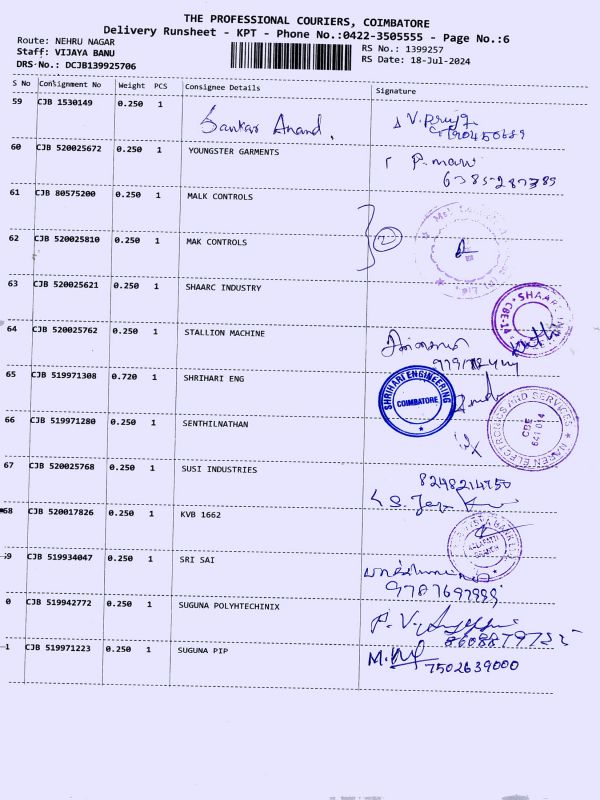 THE PROFESSIONAL COURIERS, COIMBATORE
Delivery Runsheet - KPT - Phone No.:0422-3505555 - Page No.:6
Route: NEHRU NAGAR
Staff: VIJAYA BANU
DRS No.: DCJB139925706
RS No.: 1399257
RS Date: 18-Jul-2024
S No Consignment No Weight PCS Consignee Details Signature
59 CJB 1530149 0.250 1 Sankar Anand.
60 CJB 520025672 0.250 1 YOUNGSTER GARMENTS
61 CJB 80575200 0.250 1 MALK CONTROLS
62 CJB 520025810 0.250 1 MAK CONTROLS 2
63 CJB 520025621 0.250 1 SHAARC INDUSTRY SHAARC
64 CJB 520025762 0.250 1 STALLION MACHINE
65 CJB 519971308 0.720 1 SHRIHARI ENG SHRIHARI ENGINEERING COIMBATORE
66 CJB 519971280 0.250 1 SENTHILNATHAN ELECTRONICS AND SERVICES CBE 641 014
67 CJB 520025768 0.250 1 SUSI INDUSTRIES 8248214750
68 CJB 520017826 0.250 1 KVB 1662
9 CJB 519934047 0.250 1 SRI SAI
0 CJB 519942772 0.250 1 SUGUNA POLYHTECHINIX
1 CJB 519971223 0.250 1 SUGUNA PIP 7502639000